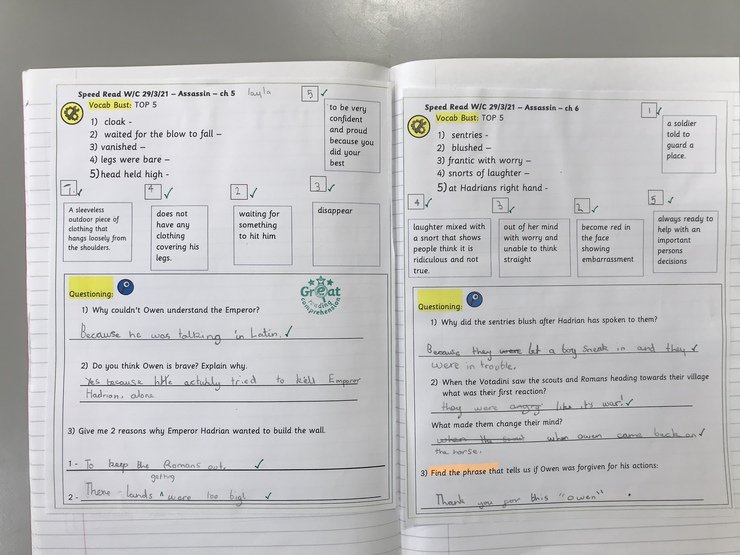 Speed Read W/C 29/3/21 – Assassin – ch 5 layla
Vocab Bust: TOP 5
1) cloak -
2) waited for the blow to fall –
3) vanished –
4) legs were bare –
5) head held high -
5 ✓
to be very
confident
and proud
because you
did your
best
1. ✓
A sleeveless
outdoor piece of
clothing that
hangs loosely from
the shoulders.
4 ✓
does not
have any
clothing
covering his
legs.
2 ✓
waiting for
something
to hit him
3 ✓
disappear
Questioning:
Great
reading
comprehension
1) Why couldn't Owen understand the Emperor?
Because he was talking in Latin. ✓
2) Do you think Owen is brave? Explain why.
Yes because he actually tried to kill Emperor
Hadrian, alone
3) Give me 2 reasons why Emperor Hadrian wanted to build the wall.
1 - To keep the Romans out. ✓
getting
2 - There lands ^ were too big! ✓
Speed Read W/C 29/3/21 – Assassin – ch 6
Vocab Bust: TOP 5
1) sentries -
2) blushed –
3) frantic with worry –
4) snorts of laughter –
5) at Hadrians right hand -
1 ✓
a soldier
told to
guard a
place.
4 ✓
laughter mixed with
a snort that shows
people think it is
ridiculous and not
true.
3 ✓
out of her mind
with worry and
unable to think
straight
2 ✓
become red in
the face
showing
embarrassment
5 ✓
always ready to
help with an
important
persons
decisions
Questioning:
1) Why did the sentries blush after Hadrian has spoken to them?
Because they were let a boy sneak in and they ✓
were in trouble.
2) When the Votadini saw the scouts and Romans heading towards their village
what was their first reaction?
they were angry like it's war! ✓
What made them change their mind?
when the when owen came back on ✓
the horse.
3) Find the phrase that tells us if Owen was forgiven for his actions:
Thank you for this "owen"